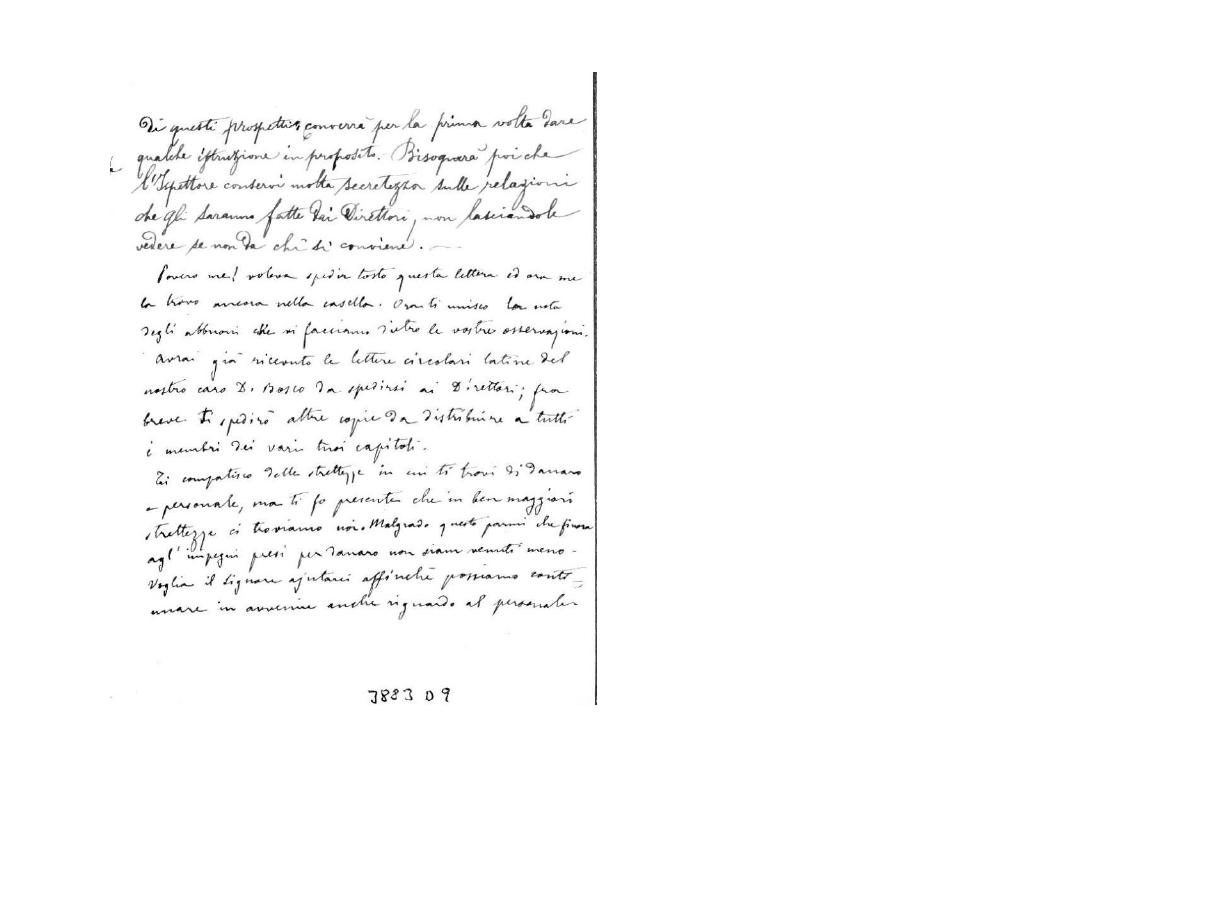 di questi prospetti converrà per la prima volta dare
qualche istruzione in proposito. Bisognerà poi che
l'Ispettore conservi molta secretezza sulle relazioni
che gli saranno fatte dai Direttori, non lasciandole
vedere se non da chi si conviene. —
Povero me! voleva spedir tosto questa lettera ed ora me
la trovo ancora nella casella. Ora ti unisco la nota
degli abbuoni che vi facciamo dietro le vostre osservazioni.
Avrai già ricevuto le lettere circolari latine del
nostro caro D. Bosco da spedirsi ai Direttori; fra
breve ti spedirò altre copie da distribuire a tutti
i membri dei varii tuoi capitoli.
Ti compatisco delle strettezze in cui ti trovi di danaro
e personale, ma ti fo presente che in ben maggiori
strettezze ci troviamo noi. Malgrado questo parmi che finora
agl' impegni presi per danaro non siam venuti meno.
Voglia il Signore ajutarci affinchè possiamo conti=
nuare in avvenire anche riguardo al personale.
3883 D 9